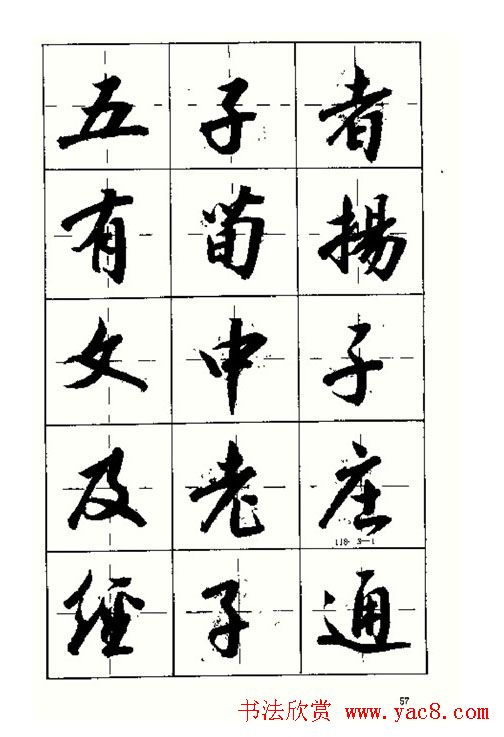 五子者
有荀揚
文中子
及老庄
118-3-1
經子通
57
书法欣赏 www.yac8.com